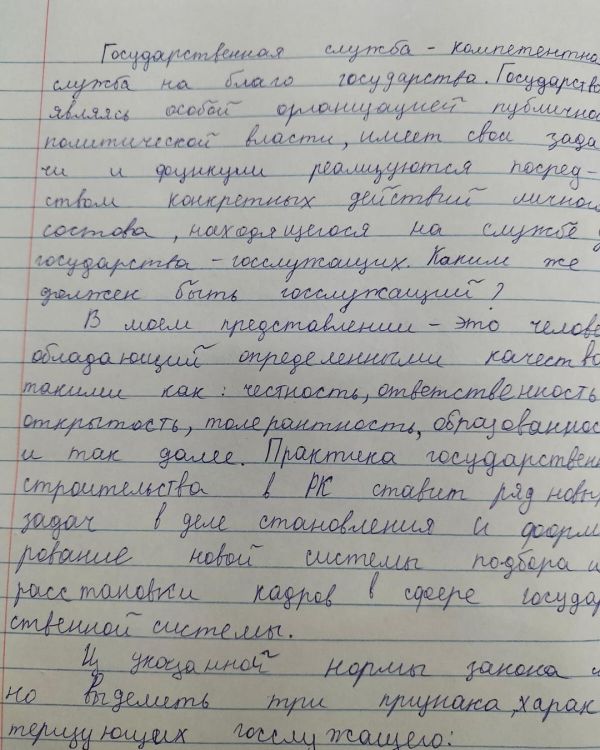 Государственная служба - компетентна
служба на благо государства. Государство
являясь особой организацией публично
политической власти, имеет свои зада
чи и функции реализуются посред-
ством конкретных действий личного
состова, находящегося на службе
государства - госслужащих. Каким же
должен быть госслужащий?
В моем представлении - это челове
обладающий определенными качество
такими как: честность, ответственность
открытость, толерантность, образованнос
и так далее. Практика государственн
строительства в РК ставит ряд новых
задач в деле становления и форми
рование новой системы подбора и
расстановки кадров в сфере государ
ственной системы.
Из указанной нормы закона м
но выделить три признака, харак
теризующих госслужащего: